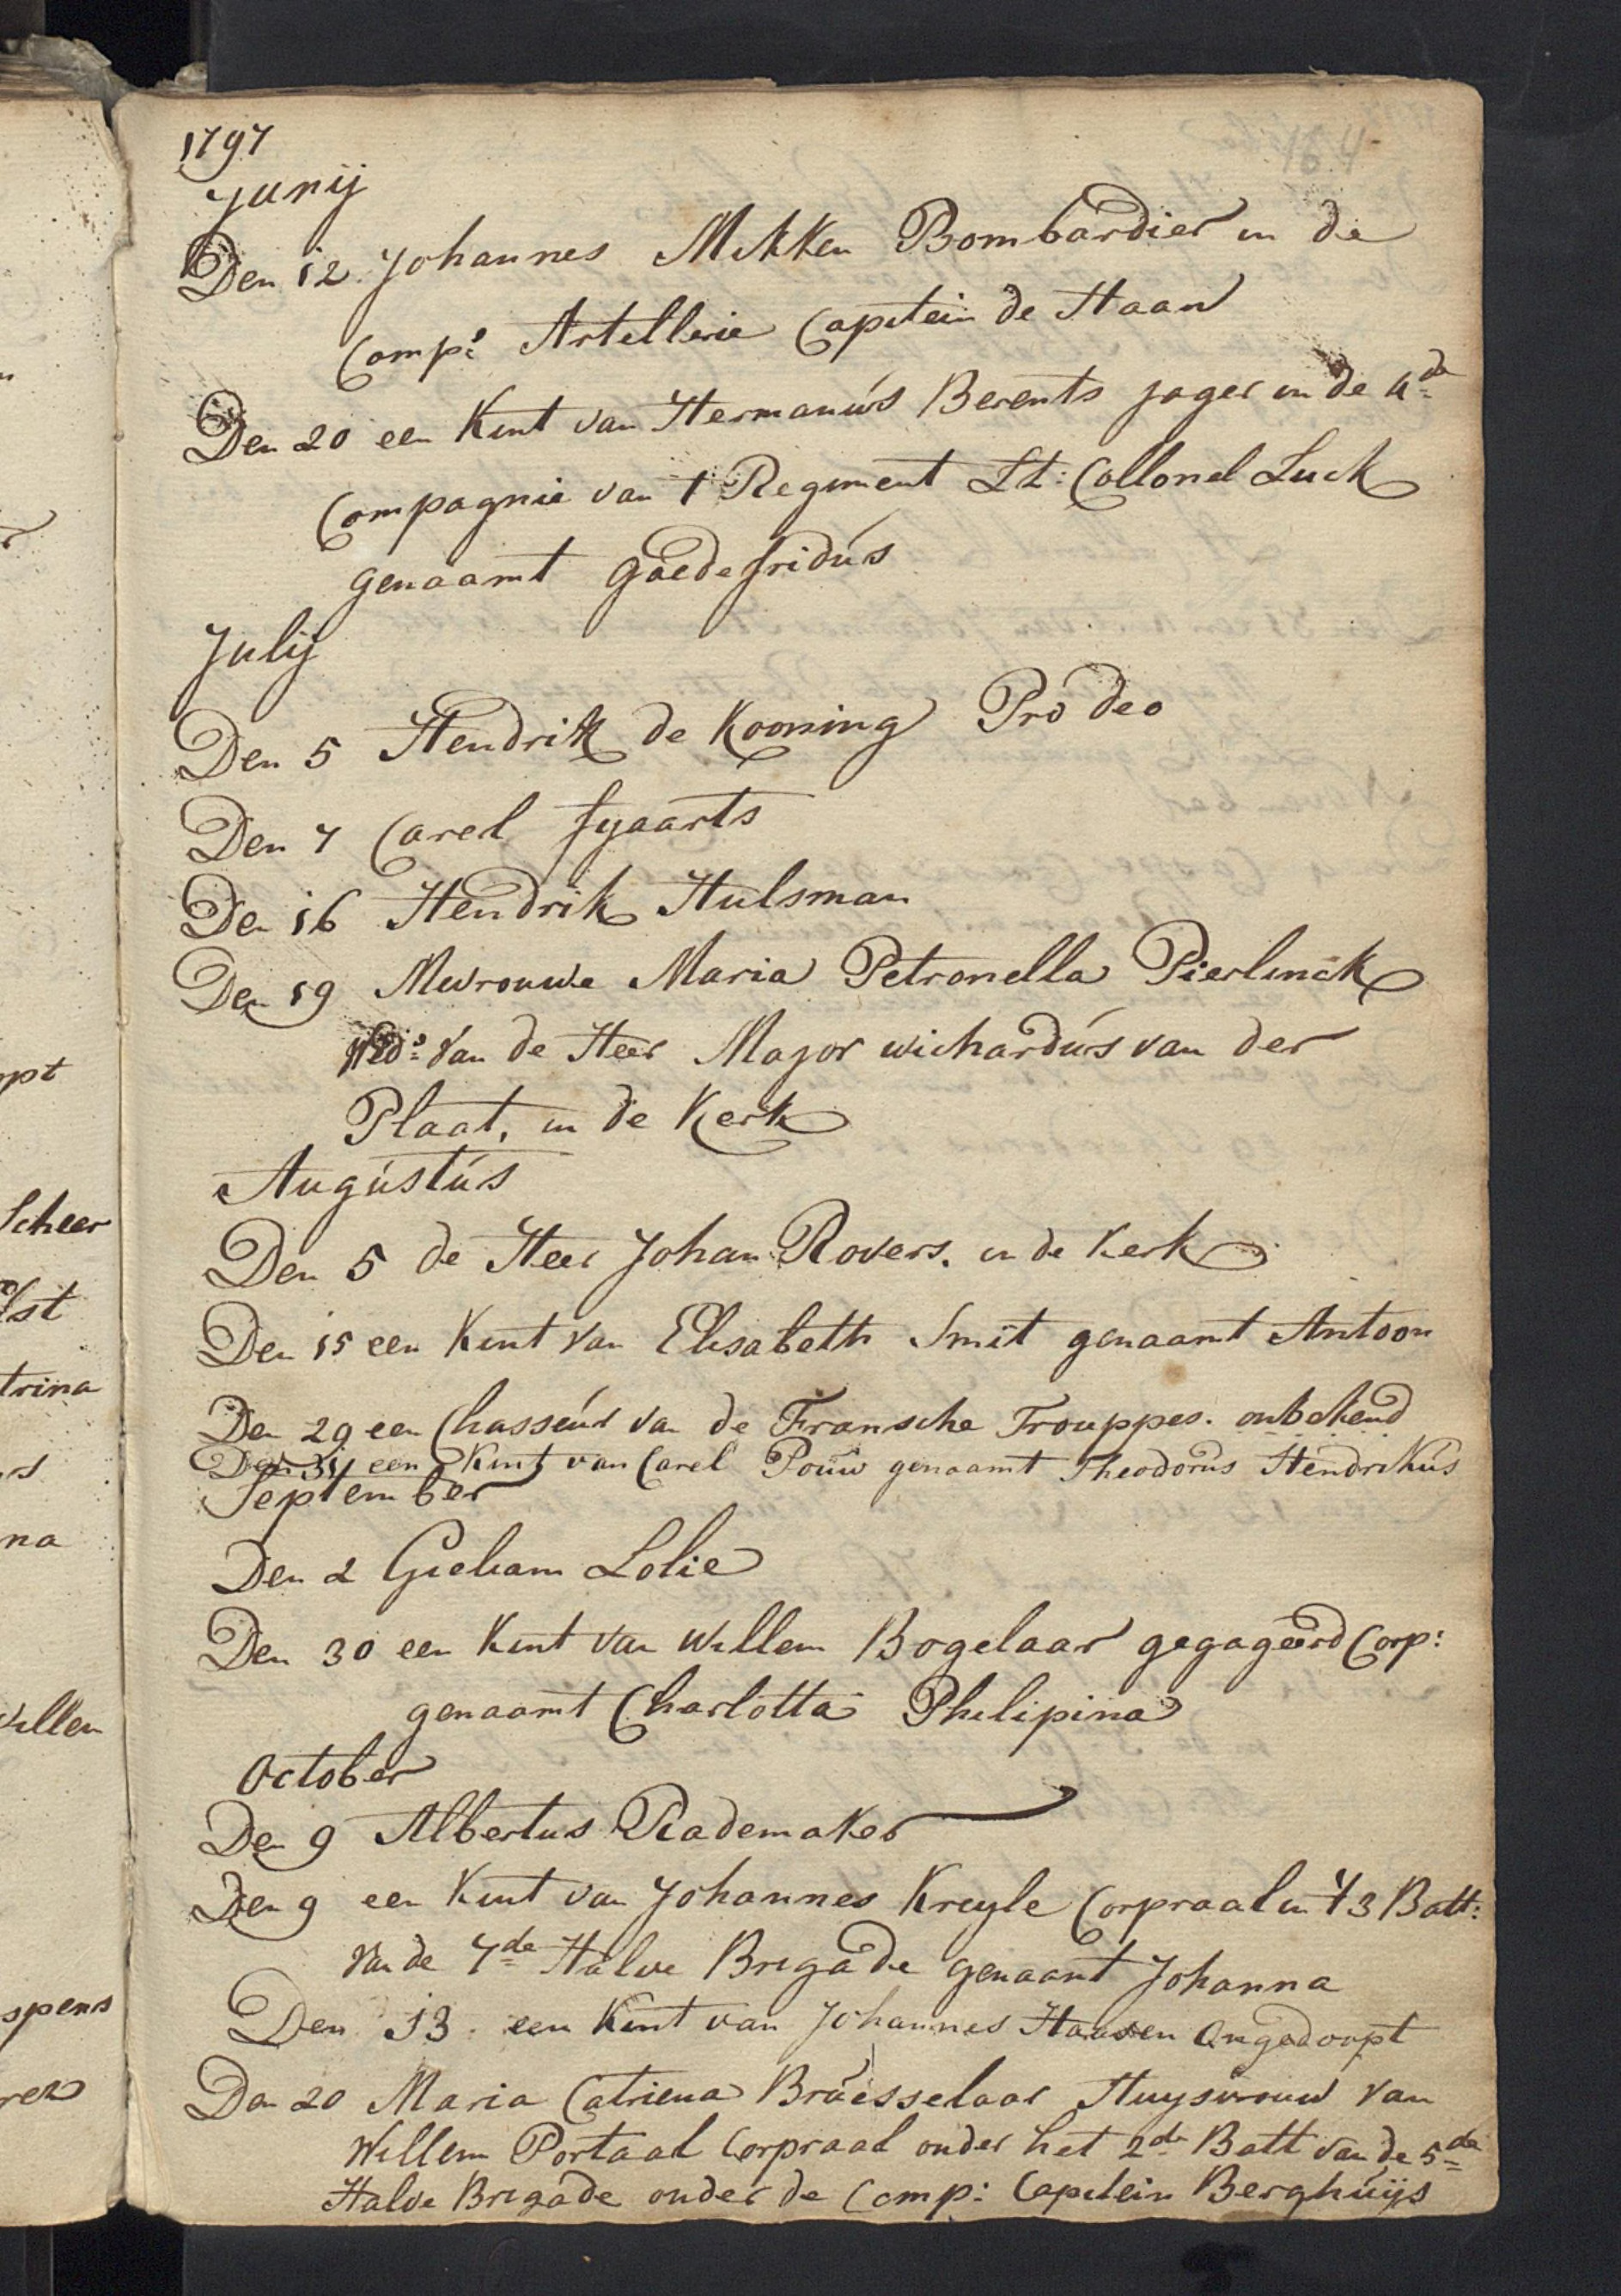 1797
Junij
Den 12 Johannes Mikken Bombardier in de
Comp:e Artellerie Capitein de Haan
Den 20 een Kint van Hermanus Berents jager in de 4de
Compagnie van 1 Regiment Lt: Collonel Luck
genaamt goedefridus
Julij
Den 5 Hendrik de Kooning Pro deo
Den 7 Carel fyaarts
Den 16 Hendrik Hulsman
Den 19 Mevrouwe Maria Petronella Pierlinck
Wed:e van de Heer Major wichardus van der
Plaat, in de Kerk
Augustus
Den 5 de Heer Johan Rovers. in de Kerk
Den 15 een Kint van Elisabeth Smit genaamt Antoon
Den 29 een Chasseur van de Fransche Trouppes. onbekend
Den 31 een Kint van Carel Pouw genaamt Theodorus Hendrikus
September
Den 2 Gieliam Lolie
Den 30 een Kint van Willem Bogelaar gegageerd Corp:
genaamt Charlotta Philipina
October
Den 9 Albertus Rademaker
Den 9 een Kint van Johannes Kreyle Corpraal in 't 3 Batt:
van de 7de Halve Brigade genaamt Johanna
Den 13 een Kint van Johannes Haasen Ongedoopt
Den 20 Maria Catriena Bruesselaar Huysvrouw van
Willem Portaal Corpraal onder het 2de Batt van de 5de
Halve Brigade onder de Comp: Capitein Berghuijs
pt
Scheer
st
trina
na
willem
spens